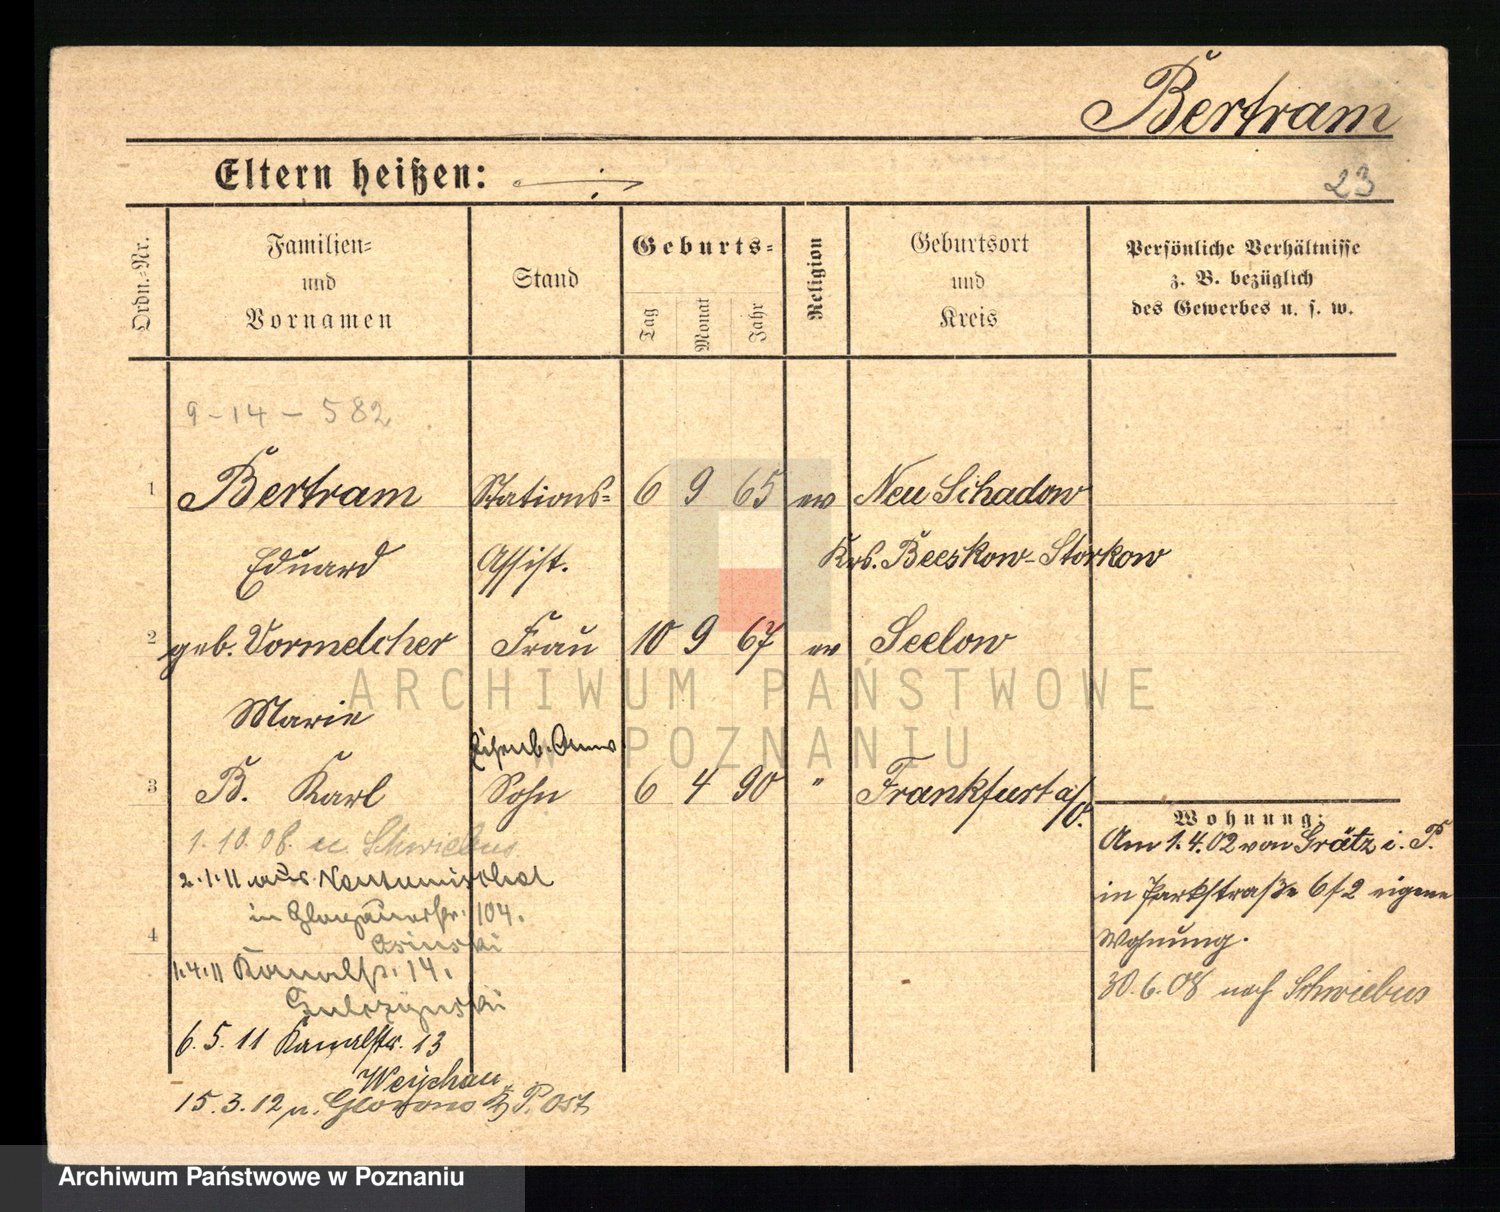 Bertram
Eltern heißen:
23
Ordn.=Nr.
Familien=
und
Vornamen
Stand
Geburts=
Tag
Monat
Jahr
Religion
Geburtsort
und
Kreis
Persönliche Verhältnisse
z. B. bezüglich
des Gewerbes u. s. w.
9-14-582
1 Bertram Stations= 6 9 65 ev Neu Schadow
Eduard Assist. Krs. Beeskow-Storkow
2 geb. Vormelcher Frau 10 9 67 ev Seelow
Marie
Eisenb.
3 B. Karl Sohn 6 4 90 " Frankfurt a/O.
Wohnung:
Am 1.4.02 von Grätz i. P.
in Parkstraße 6/2 eigene
Wohnung.
30.6.08 nach Schwiebus
1.10.08 Schwiebus
2.1.11 aus Neutomischel
in Glogauerstr. 104.
4
1.4.11 Kanalstr. 14.
6.5.11 Kanalstr. 13
15.3.12 n. P. Ost
ARCHIWUM PAŃSTWOWE
W POZNANIU
Archiwum Państwowe w Poznaniu